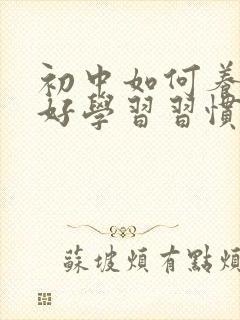 初中如何養
好學習習慣
蘇坡煩有點煩